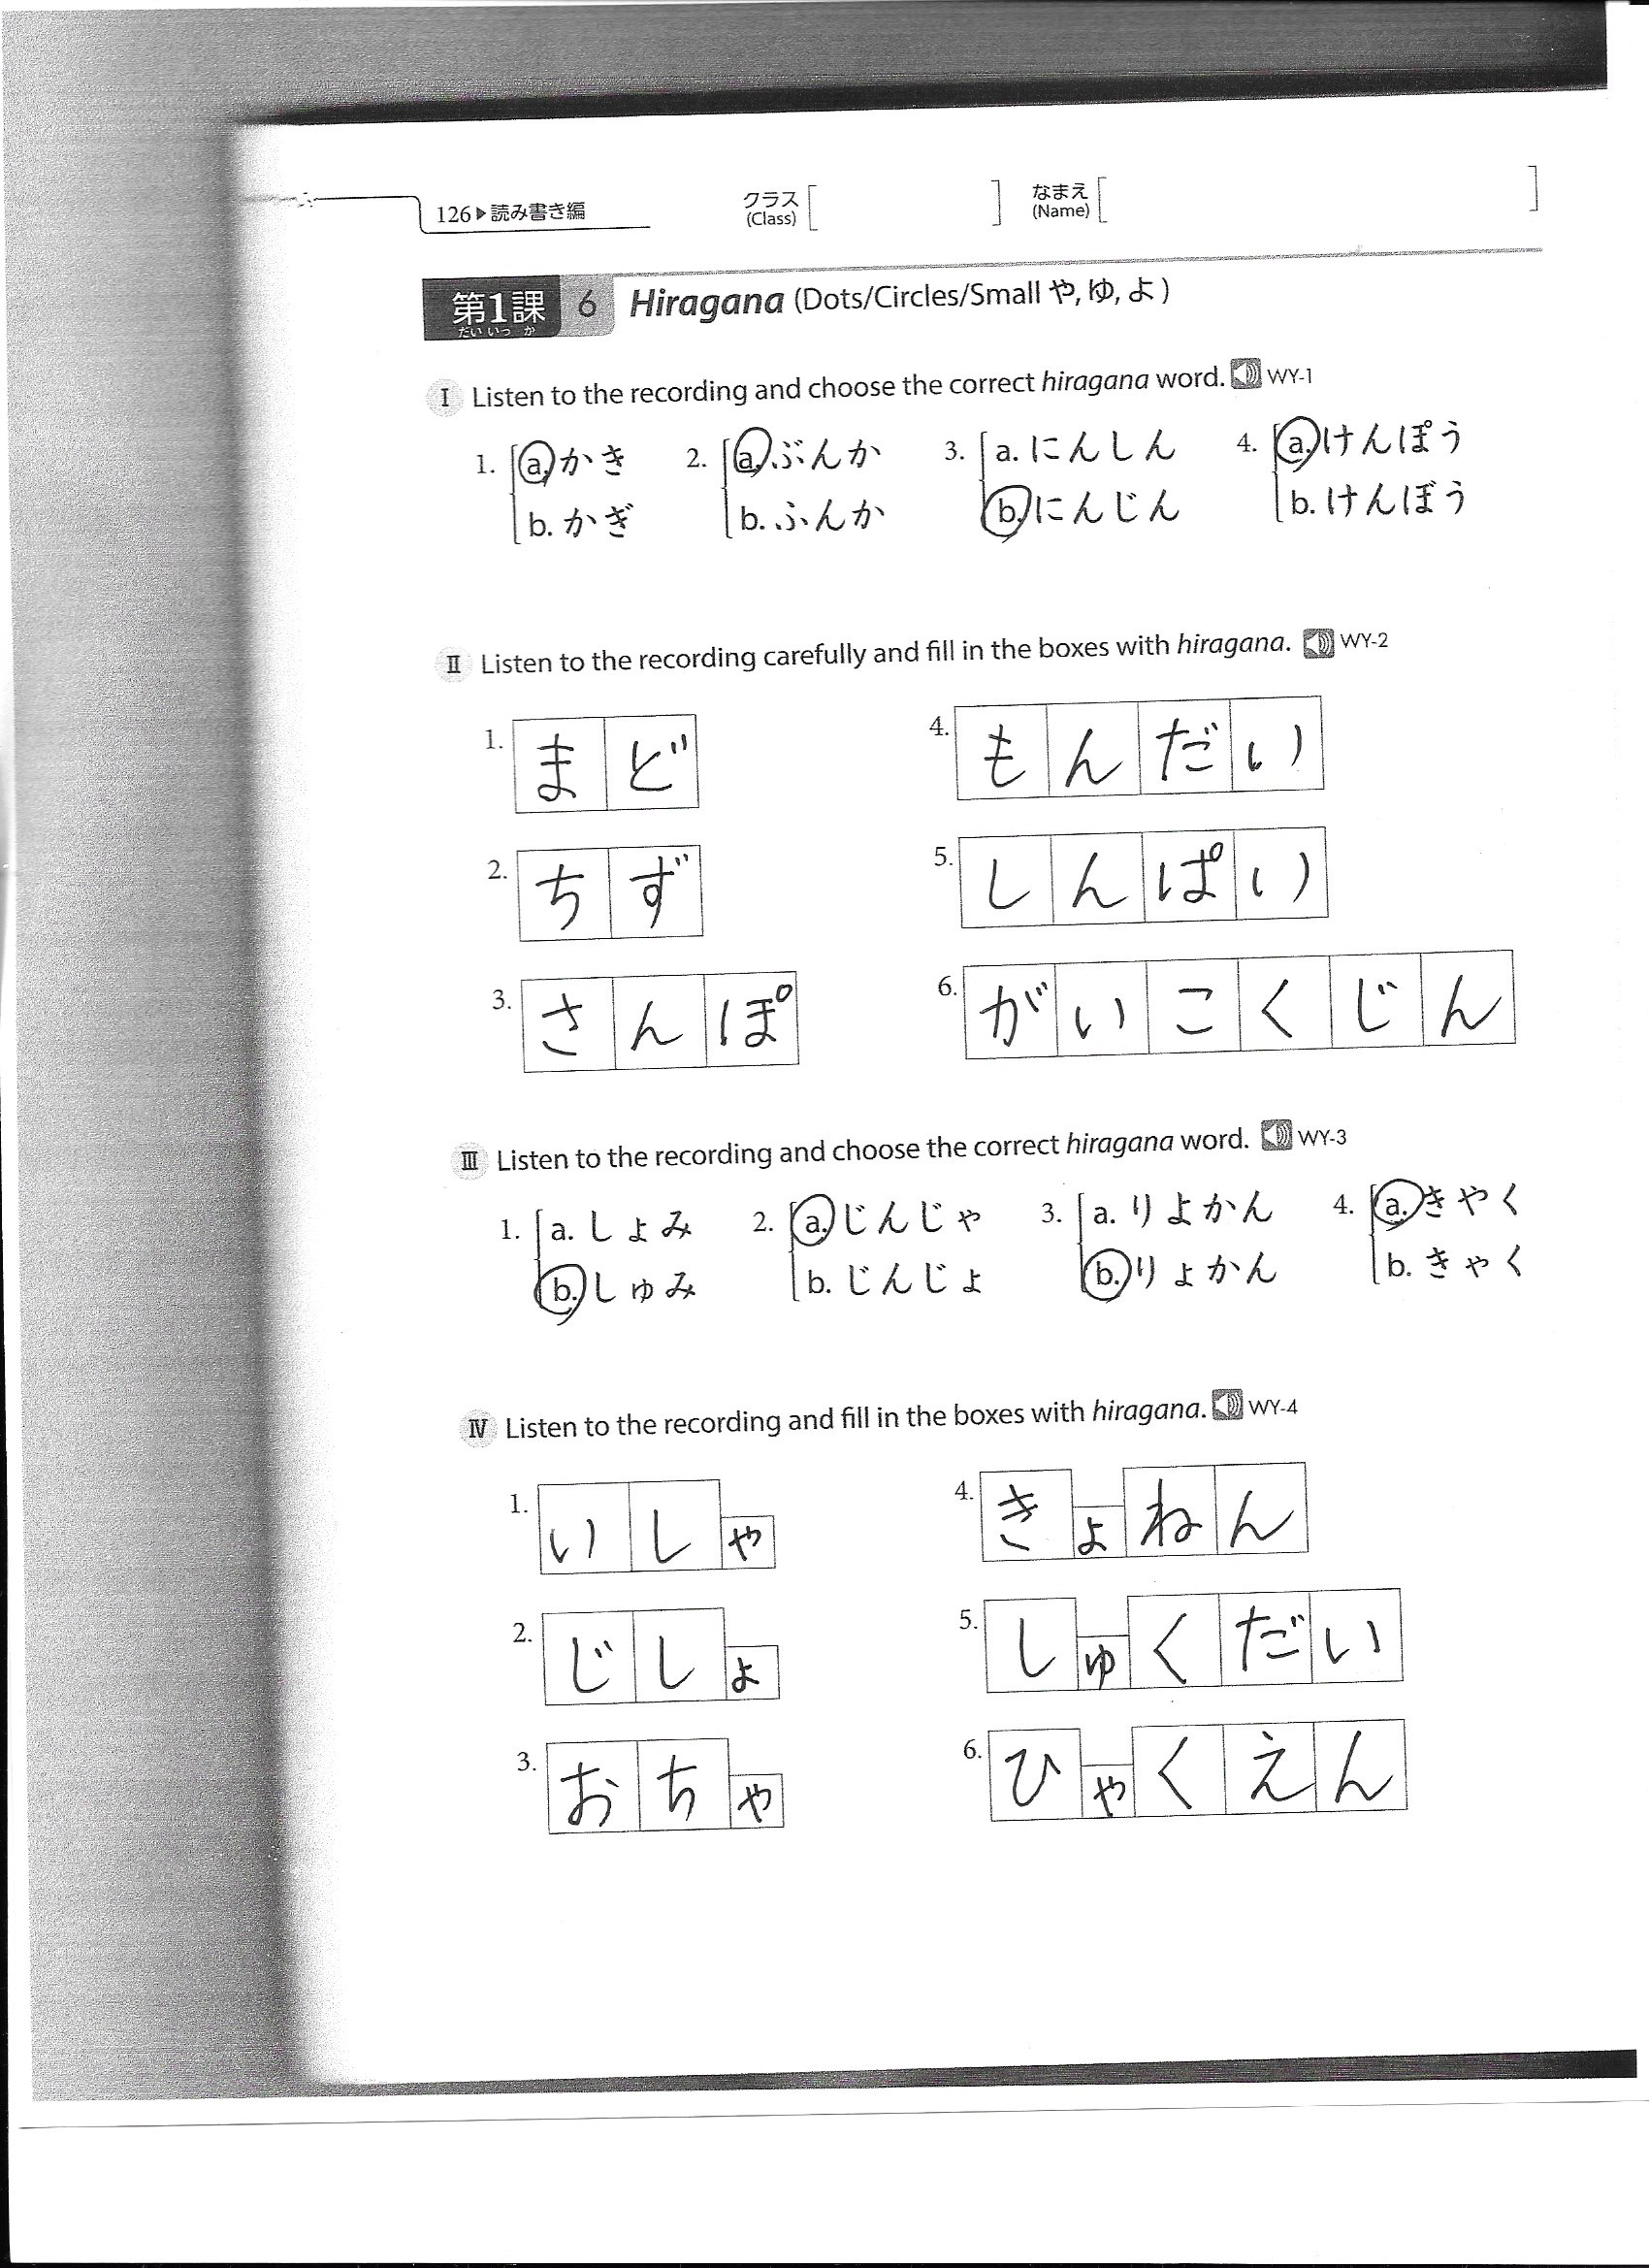 126▶読み書き編 クラス (Class) [ ] なまえ (Name) [ ]
第1課 だいいっか 6 Hiragana (Dots/Circles/Small や, ゆ, よ)
Ⅰ Listen to the recording and choose the correct hiragana word. WY-1
1. a. かき 2. a. ぶんか 3. a. にんしん 4. a. けんぽう
b. かぎ b. ふんか b. にんじん b. けんぼう
Ⅱ Listen to the recording carefully and fill in the boxes with hiragana. WY-2
1. まど 4. もんだい
2. ちず 5. しんぱい
3. さんぽ 6. がいこくじん
Ⅲ Listen to the recording and choose the correct hiragana word. WY-3
1. a. しょみ 2. a. じんじゃ 3. a. りよかん 4. a. きやく
b. しゅみ b. じんじょ b. りょかん b. きゃく
Ⅳ Listen to the recording and fill in the boxes with hiragana. WY-4
1. いしゃ 4. きょねん
2. じしょ 5. しゅくだい
3. おちゃ 6. ひゃくえん